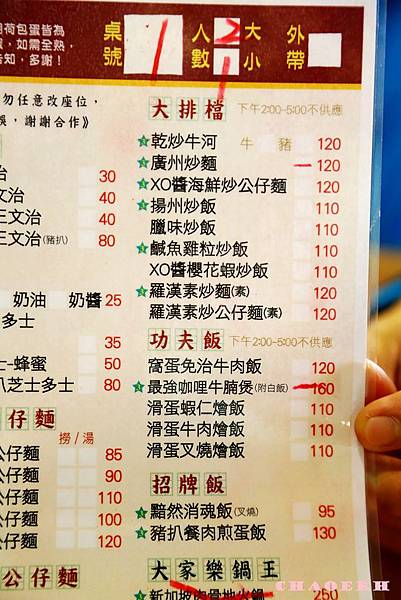 荷包蛋皆為
如需全熟,
告知,多謝!
桌號 1 人數 2 大 1 小 外帶
勿任意改座位,
謝謝合作》
大排檔 下午2:00-5:00不供應
乾炒牛河 牛 豬 120
廣州炒麵 120
XO醬海鮮炒公仔麵 120
揚州炒飯 110
臘味炒飯 110
鹹魚雞粒炒飯 110
XO醬櫻花蝦炒飯 110
羅漢素炒麵(素) 120
羅漢素炒公仔麵(素) 120
功夫飯 下午2:00-5:00不供應
窩蛋免治牛肉飯 120
最強咖哩牛腩煲(附白飯) 160
滑蛋蝦仁燴飯 110
滑蛋牛肉燴飯 110
滑蛋叉燒燴飯 110
招牌飯
黯然消魂飯(叉燒) 95
豬扒餐肉煎蛋飯 130
大家樂鍋王
新加坡肉骨地火鍋 250
治 30
文治 40
三文治 40
三文治(豬扒) 80
奶油 奶醬 25
多士
35
士-蜂蜜 50
扒芝士多士 80
仔麵
撈/湯
公仔麵 85
公仔麵 90
公仔麵 110
公仔麵 100
公仔麵 120
公仔麵
CHAOEKH